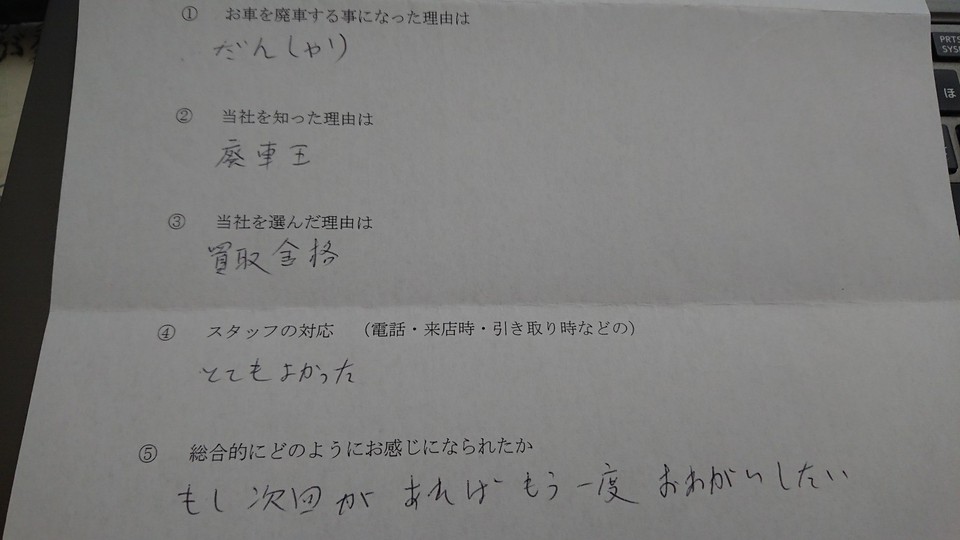 ① お車を廃車する事になった理由は
だんしゃり
② 当社を知った理由は
廃車王
③ 当社を選んだ理由は
買取金格
④ スタッフの対応 （電話・来店時・引き取り時などの）
とてもよかった
⑤ 総合的にどのようにお感じになられたか
もし次回があればもう一度おねがいしたい
PRTS
SYS
ほ